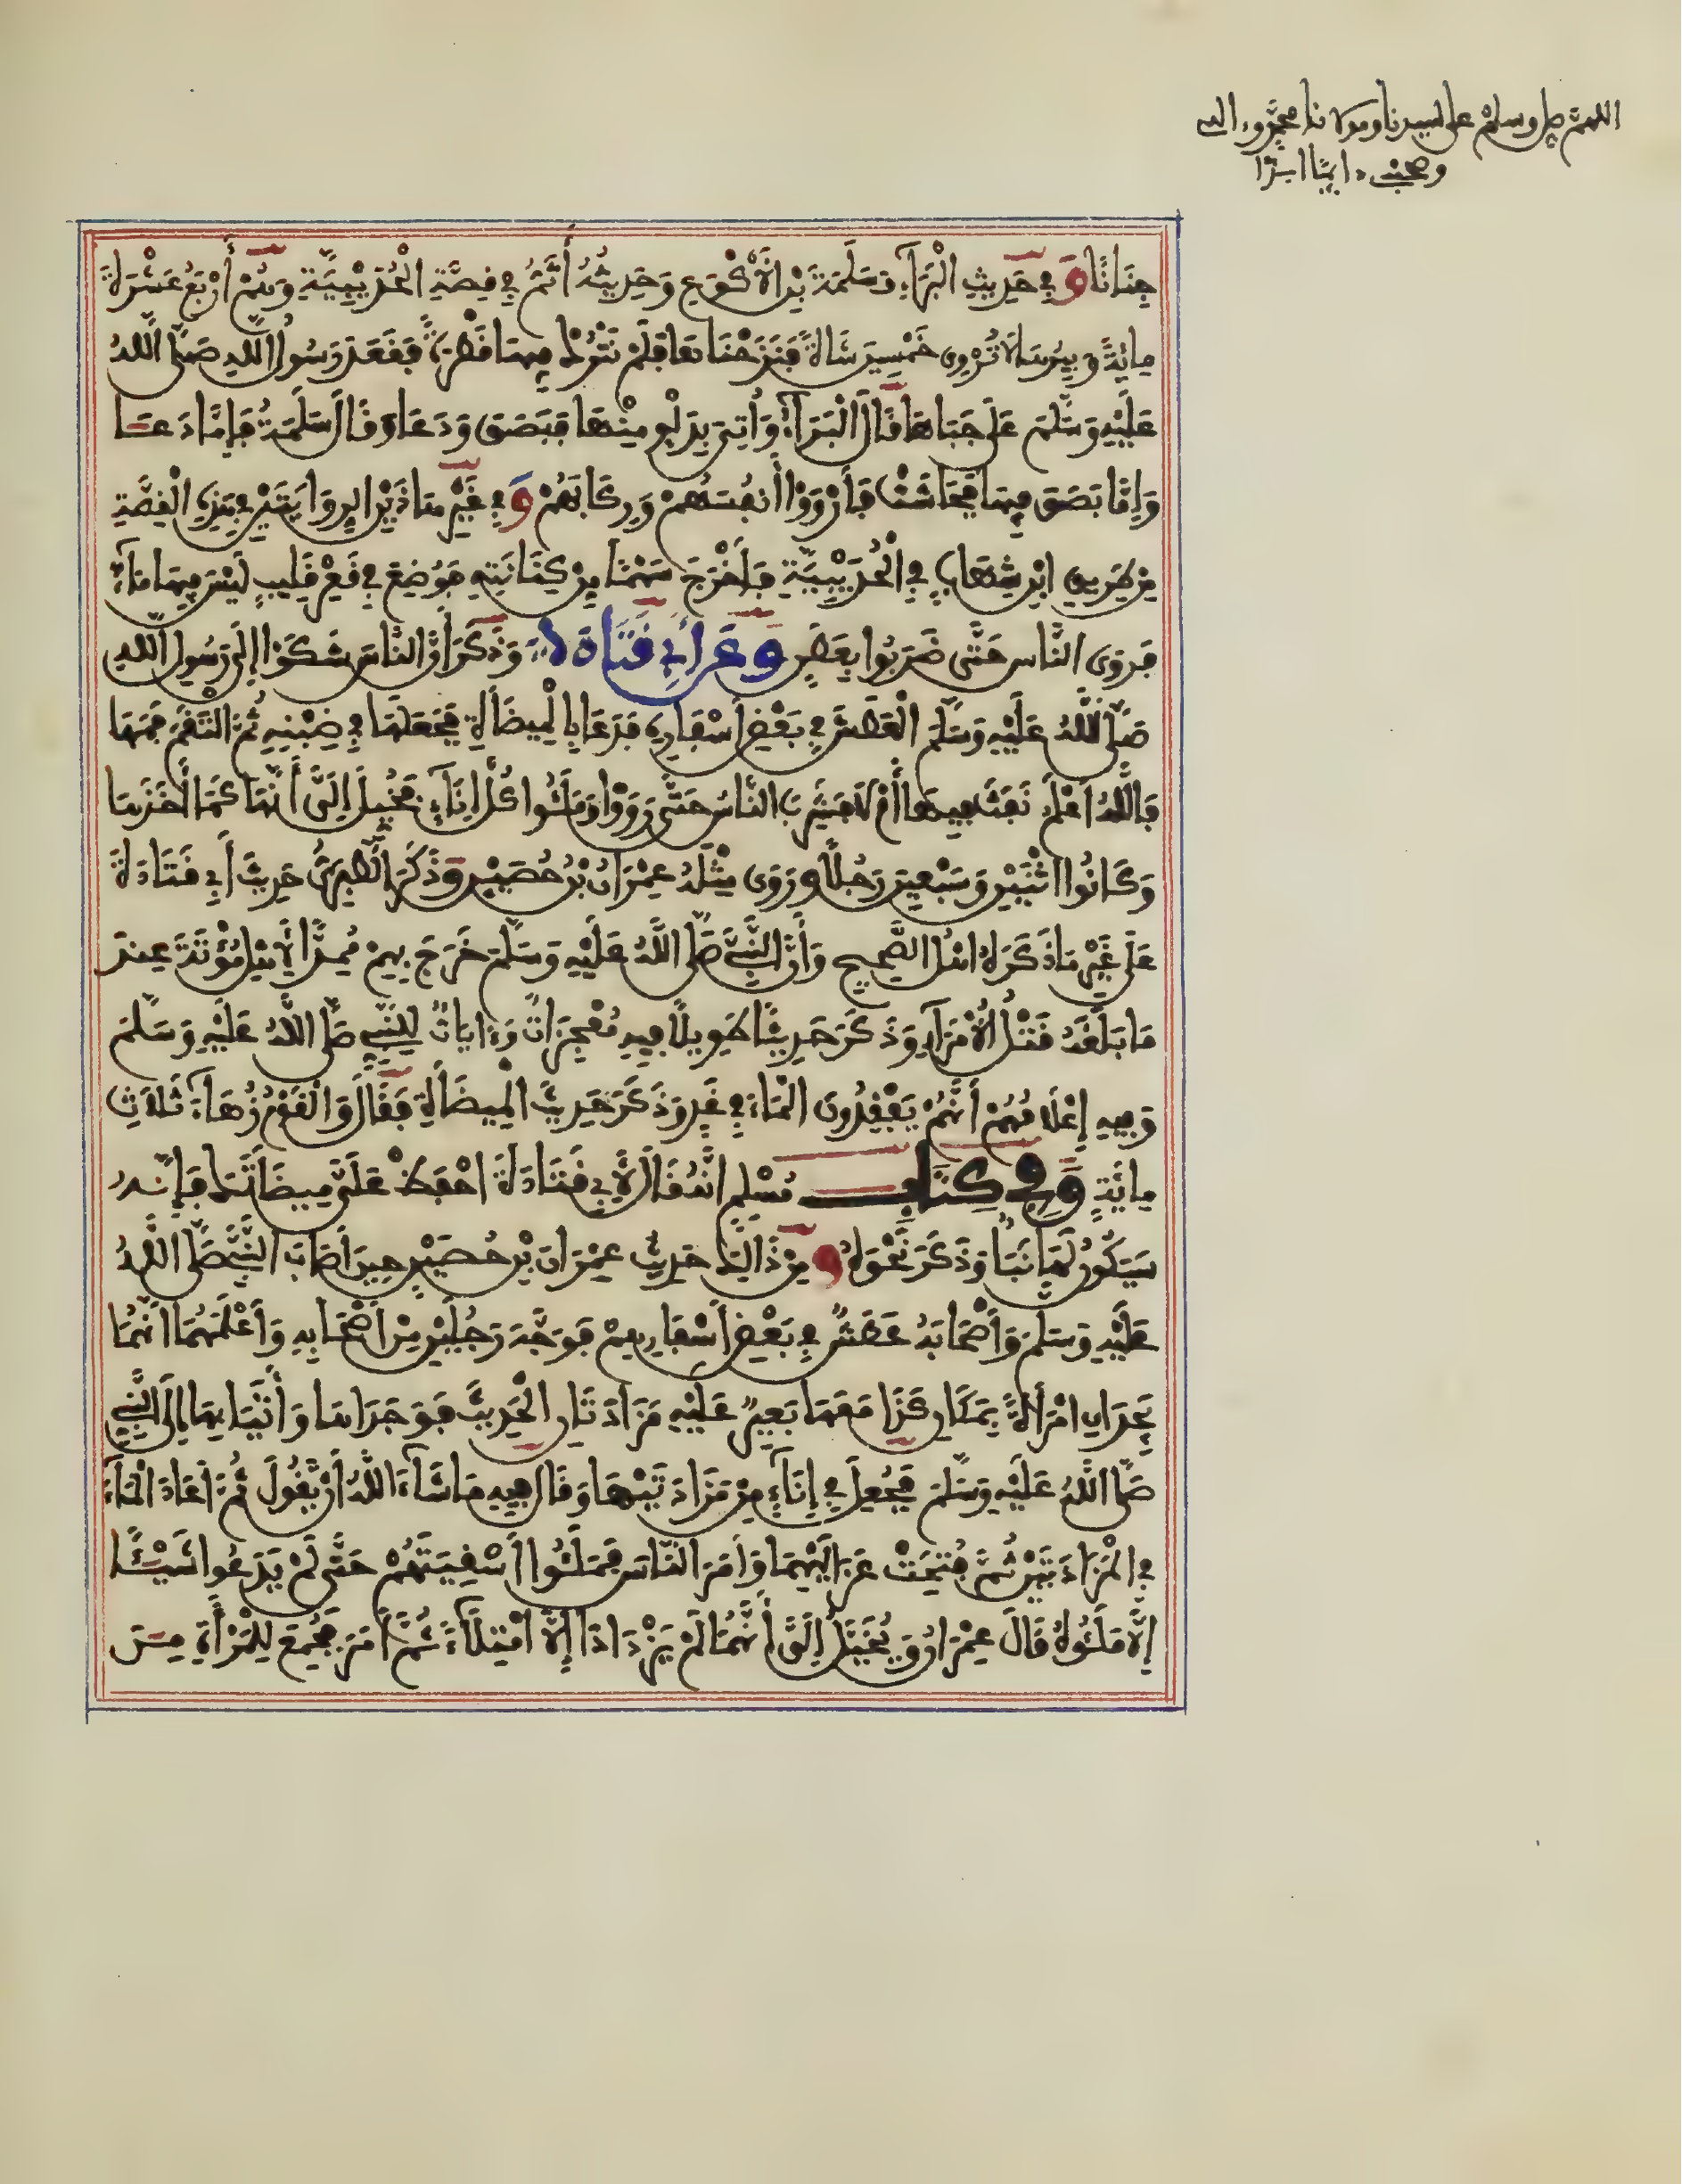 اللهم صل وسلم على سيدنا ومولانا محمد وءاله
وصحبه دايما ابدا
جِنَانًا وَفِي حَدِيثِ الْبَرَاءِ وَسَلَمَةَ بْنِ الْأَكْوَعِ وَحَدِيثُهُ أَتَمُّ فِي قِصَّةِ الْحُدَيْبِيَّةِ وَهُمْ أَرْبَعَ عَشْرَةَ
مِائَةً وَبِيرُهَا لَا تُرْوِي خَمْسِينَ شَاةً فَنَزَحْنَاهَا فَلَمْ نَتْرُكْ فِيهَا قَطْرَةً فَقَعَدَ رَسُولُ اللَّهِ صَلَّى اللَّهُ
عَلَيْهِ وَسَلَّمَ عَلَى جَبَاهَا قَالَ الْبَرَاءُ وَأُتِيَ بِدَلْوٍ مِنْهَا فَبَصَقَ وَدَعَا وَقَالَ سَلَمَةُ فَإِمَّا دَعَا
وَإِمَّا بَصَقَ فِيهَا فَجَاشَتْ فَأَرْوَوْا أَنفُسَهُمْ وَرِكَابَهُمْ وَفِي غَيْرِ هَاذَيْنِ الرِّوَايَتَيْنِ فِي هَذِهِ الْقِصَّةِ
مِن طَرِيقِ ابْنِ شِهَابٍ فِي الْحُدَيْبِيَّةِ فَأَخْرَجَ سَهْمًا مِنْ كِنَانَتِهِ فَوُضِعَ فِي قَعْرِ قَلِيبٍ لَيْسَ فِيهَا مَاءٌ
فَرَوَى النَّاسُ حَتَّى ضَرَبُوا بِعَطَنٍ وَعَنْ أَبِي قَتَادَةَ وَذَكَرَ أَنَّ النَّاسَ شَكَوْا إِلَى رَسُولِ اللَّهِ
صَلَّى اللَّهُ عَلَيْهِ وَسَلَّمَ الْعَطَشَ فِي بَعْضِ أَسْفَارِهِ فَدَعَا بِالْمِيضَأَةِ فَجَعَلَهَا فِي ضِبْنِهِ ثُمَّ الْتَقَمَ فَمَهَا
فَاللَّهُ أَعْلَمُ نَفَثَ فِيهَا أَمْ لَا فَشَرِبَ النَّاسُ حَتَّى رَوَوْا وَمَلَئُوا كُلَّ إِنَاءٍ فَخُيِّلَ إِلَيَّ أَنَّهَا كَمَا أَخَذَهَا
وَكَانُوا اثْنَيْنِ وَسَبْعِينَ رَجُلًا وَرَوَى مِثْلَهُ عِمْرَانُ بْنُ حُصَيْنٍ وَذَكَرَ الطَّبَرِيُّ حَدِيثَ أَبِي قَتَادَةَ
عَلَى غَيْرِ مَا ذَكَرَهُ أَهْلُ الصَّحِيحِ وَأَنَّ النَّبِيَّ صَلَّى اللَّهُ عَلَيْهِ وَسَلَّمَ خَرَجَ بِهِمْ مُمِدًّا لِأَهْلِ مُؤْتَةَ عِندَ
مَا بَلَغَهُ قَتْلُ الْأُمَرَاءِ وَذَكَرَ حَدِيثًا طَوِيلًا فِيهِ مُعْجِزَاتٌ وَءَايَاتٌ لِلنَّبِيِّ صَلَّى اللَّهُ عَلَيْهِ وَسَلَّمَ
وَفِيهِ إِعْلَامُهُمْ أَنَّهُمْ يَفْقِدُونَ الْمَاءَ فِي غَدٍ وَذَكَرَ حَدِيثَ الْمِيضَأَةِ فَقَالَ وَالْقَوْمُ زُهَاءُ ثَلَاثِ
مِائَةٍ وَفِي كِتَابِ مُسْلِمٍ أَنَّهُ قَالَ لِأَبِي قَتَادَةَ احْفَظْ عَلَيَّ مِيضَأَتَهَا فَإِنَّهُ
سَيَكُونُ لَهَا نَبَأٌ وَذَكَرَ نَحْوَهُ وَمِنْ ذَالِكَ حَدِيثُ عِمْرَانَ بْنِ حُصَيْنٍ حِينَ أَصَابَ النَّبِيَّ صَلَّى اللَّهُ
عَلَيْهِ وَسَلَّمَ وَأَصْحَابَهُ عَطَشٌ فِي بَعْضِ أَسْفَارِهِمْ فَوَجَّهَ رَجُلَيْنِ مِنْ أَصْحَابِهِ وَأَعْلَمَهُمَا أَنَّهُمَا
يَجِدَانِ امْرَأَةً بِمَكَانِ كَذَا مَعَهَا بَعِيرٌ عَلَيْهِ مَزَادَتَانِ الْحَدِيثَ فَوَجَدَاهَا وَأَتَيَا بِهَا إِلَى النَّبِيِّ
صَلَّى اللَّهُ عَلَيْهِ وَسَلَّمَ فَجُعِلَ فِي إِنَاءٍ مِنْ مَزَادَتَيْهَا وَقَالَ فِيهِ مَا شَاءَ اللَّهُ أَنْ يَقُولَ ثُمَّ أَعَادَ الْمَاءَ
فِي الْمَزَادَتَيْنِ ثُمَّ فُتِحَتْ عَزَالِيهِمَا وَأَمَرَ النَّاسَ فَمَلَئُوا أَسْقِيَتَهُمْ حَتَّى لَمْ يَدَعُوا شَيْئًا
إِلَّا مَلَئُوهُ قَالَ عِمْرَانُ وَيُخَيَّلُ إِلَيَّ أَنَّهُمَا لَمْ يَزْدَادَا إِلَّا امْتِلَاءً ثُمَّ أَمَرَ فَجُمِعَ لِلْمَرْأَةِ مِنَ